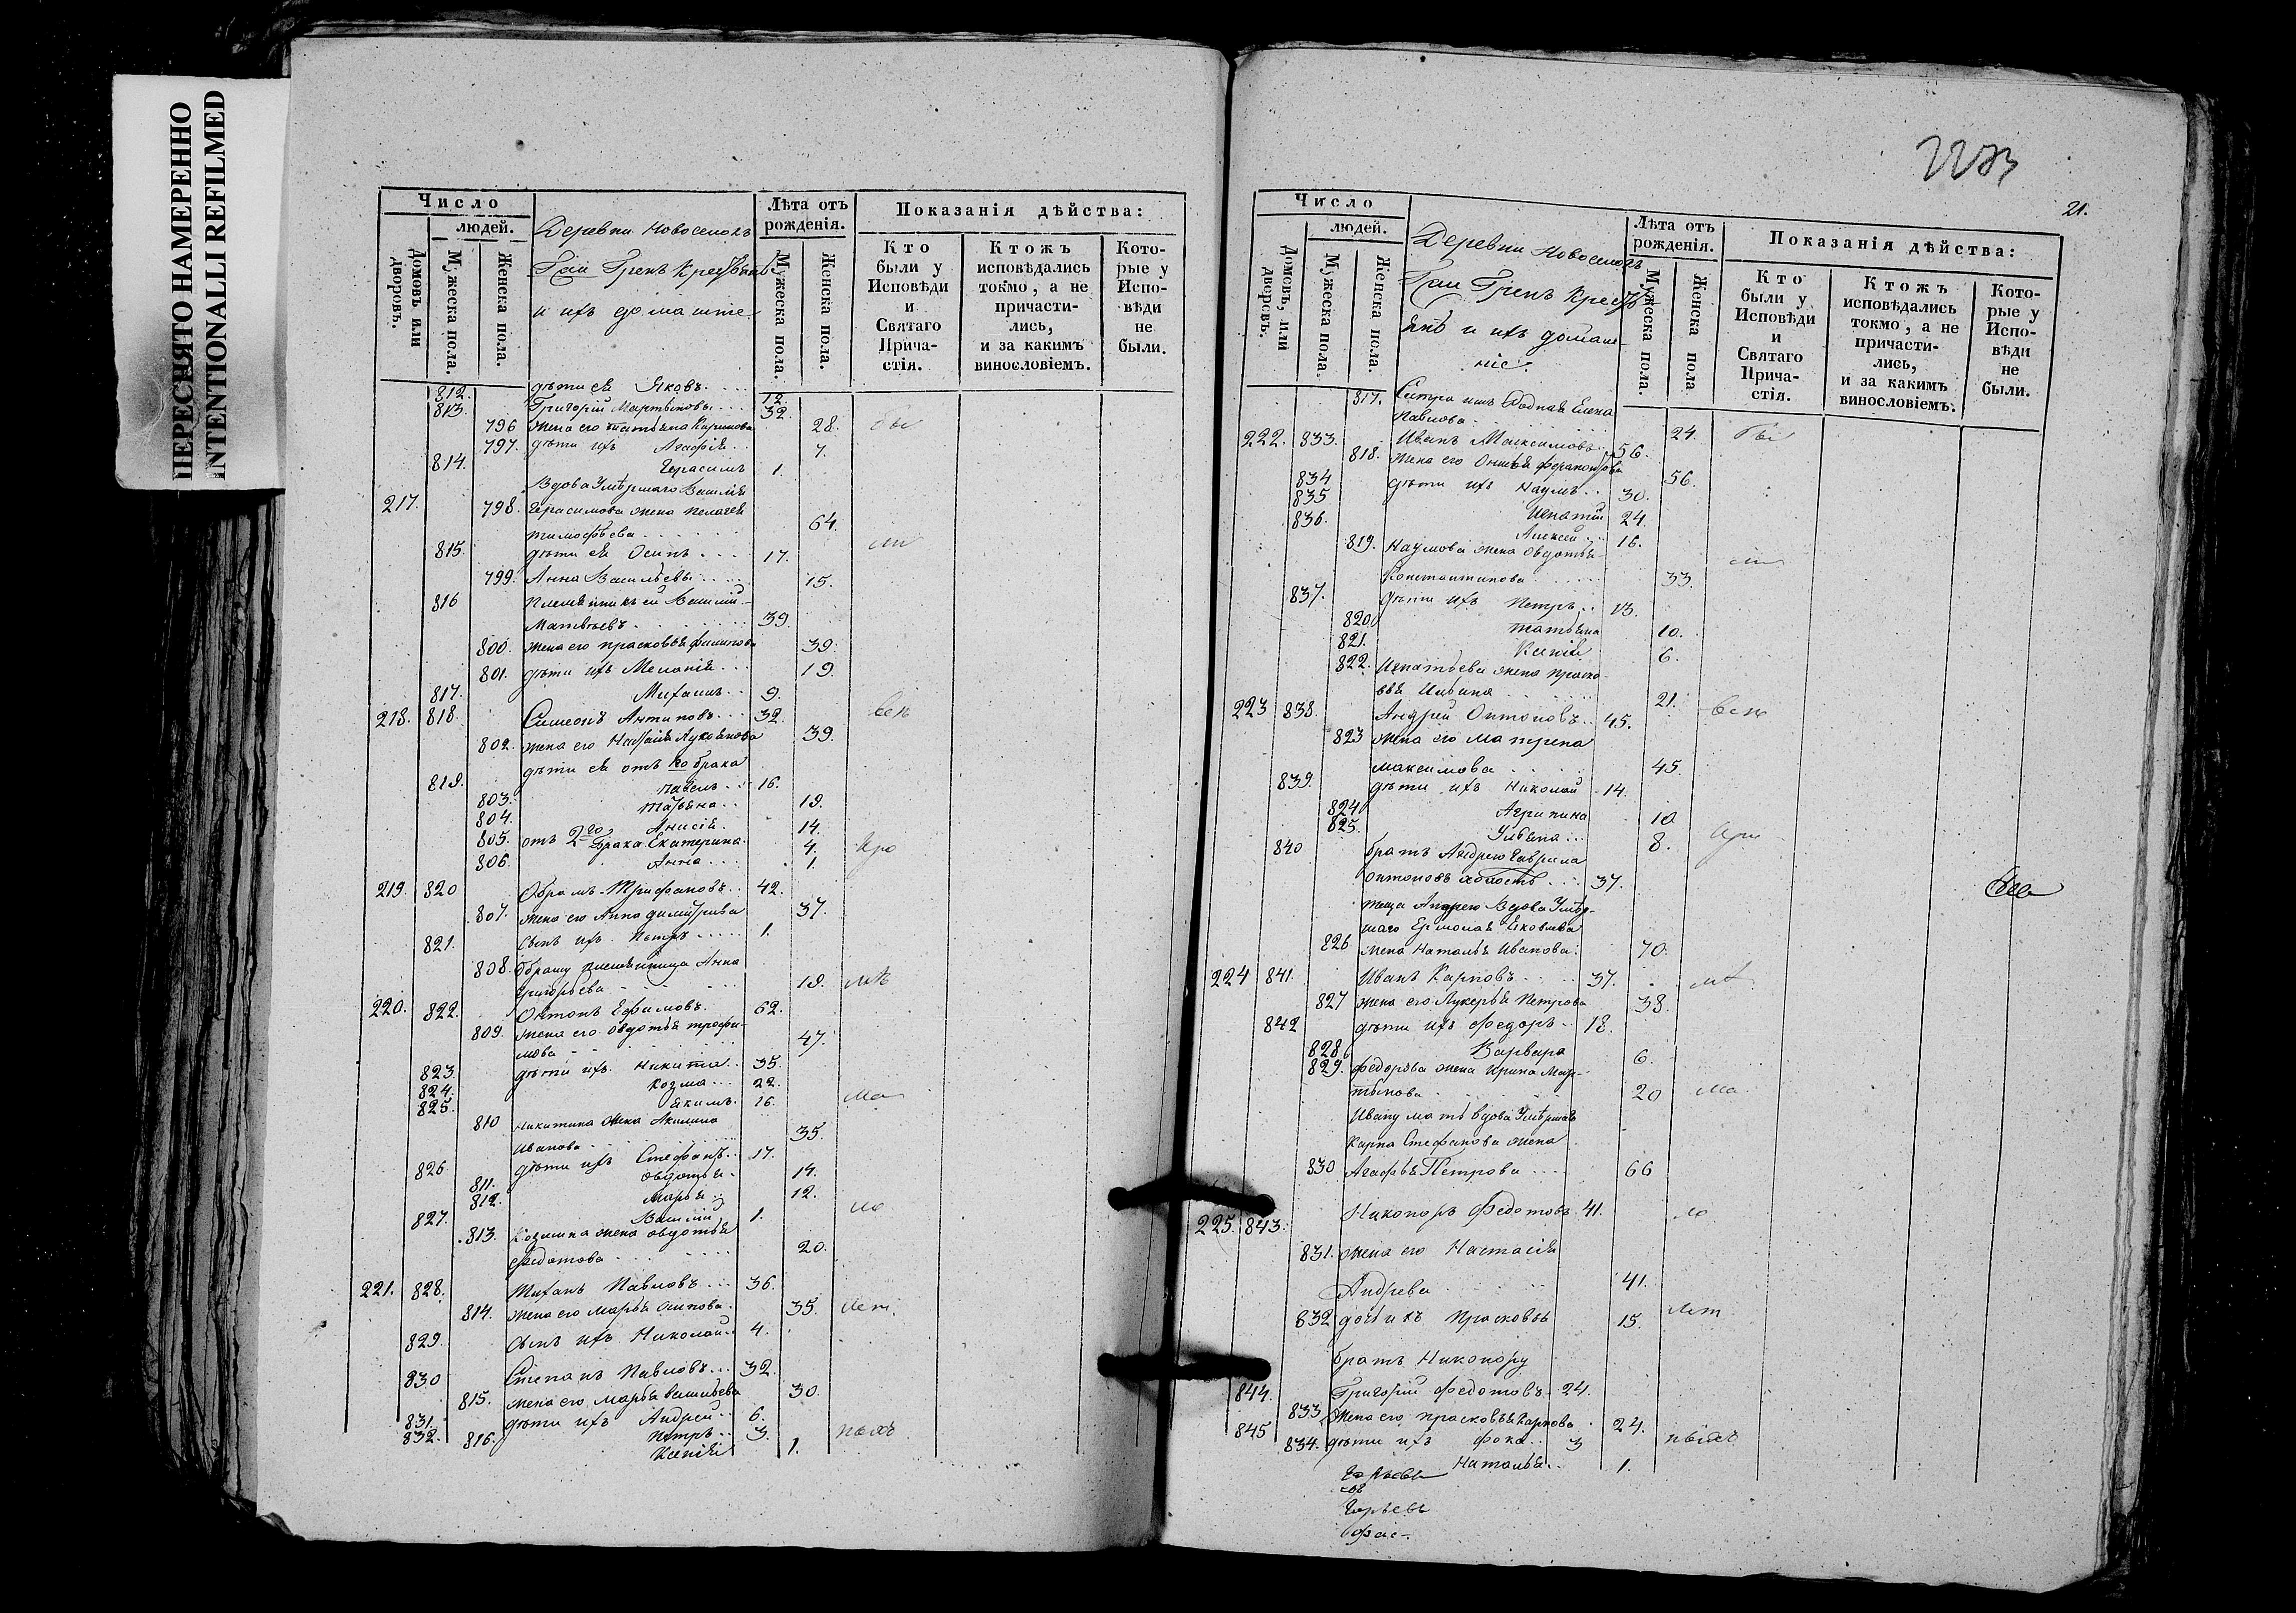 ПЕРЕСНЯТО НАМЕРЕННО
INTENTIONALLI REFILMED
Число
людей.
Домовъ или дворовъ.
Мужеска пола.
Женска пола.
Деревни Новоселокъ
Крестьянъ
и ихъ домашние
Лѣта отъ рожденія.
Мужеска пола.
Женска пола.
Показанія дѣйства:
Кто были у Исповѣди и Святаго Причастія.
Ктожъ исповѣдались токмо, а не причастились, и за какимъ винословіемъ.
Которые у Исповѣди не были.
812. дѣти ея Яковъ 12.
813. Григорій Мартыновъ 32.
796 жена его татьяна Карпинова 28. бы
797. дѣти ихъ Агафія 7.
814. Герасимъ 1.
Вдова Умѣршаго Василія
217. 798. Герасимова жена пелагея
тимофѣева 64.
815. дѣти ея Осипъ 17. ли
799. Анна Васильевы 15.
816 племянникъ ей Василий
Матвѣевъ 39.
800. жена его прасковья филипова 39.
801. дѣти ихъ Меланія 19.
817. Михаилъ 9.
218. 818. Симеонъ Антиповъ 32. всѣ
802. жена его Настасія Лукоянова 39.
дѣти ея отъ 1го брака
819. павелъ 16.
803. татьяна 19.
804. Анисія 14.
805. отъ 2го брака Екатерина 4. Кро
806. Анна 1.
219. 820 Обрамъ Трифановъ 42.
807. жена его Анна димитрива 37.
821. сынъ ихъ Петръ 1.
808. Обраму племянница Анна
григорьева 19. мѣ
220. 822. Онтонъ Ефимовъ 62.
809. жена его Овдотья трофи-
мова 47.
823. дѣти ихъ Никита 35.
824. Козма 22.
825. Якимъ 16. ма
810 Никитина жена Акилина
Иванова 35.
826. дѣти ихъ Стефанъ 17.
811. овдотья 14.
812. Марья 12.
827. Василій 1. ло
813. Козмина жена овдотья
федотова 20.
221. 828. Михаилъ Павловъ 36.
814. жена его марья Осипова 35. лет.
829. сынъ ихъ Николай 4.
830 Степанъ Павловъ 32.
815. жена его марья васильева 30.
831. дѣти ихъ Андрей 6.
832. петръ 3.
816. Ксенія 1.
21.
Число
людей.
Домовъ, или дворовъ.
Мужеска пола.
Женска пола.
Деревни Новоселокъ
и ихъ домаш-
ніе.
Лѣта отъ рожденія.
Мужеска пола.
Женска пола
Показанія дѣйства:
Кто были у Исповѣди и Святаго Причастія.
Ктожъ исповѣдались токмо, а не причастились, и за какимъ винословіемъ.
Которые у Исповѣди не были.
817. Сестра имъ родная Елена
Павлова 24. бы
222. 833. Иванъ Максимовъ 56.
818. жена его Онисья ферапонтова 56.
834 дѣти ихъ Наумъ 30.
835 Игнатій 24.
836. Алексей 16.
819. Наумова жена Овдотья ли
Константинова 33.
837. дѣти ихъ Петръ 13.
820. татьяна 10.
821. Ксенія 6.
822. Игнатьева жена праско-
вья Ильина 21.
223 838. Андрей Онтоновъ 45. всѣ
823 жена его Матрена
максимова 45.
839. дѣти ихъ Николай 14.
824 Агрипина 10
825. Ульяна 8.
840 братъ Андрею гаврила
онтоновъ холостъ 37.
теща Андрею Вдова Умѣр-
шаго Ермолая Яковлева
826 жена Наталья Иванова. 70.
224 841. Иванъ Карповъ 37. мѣ
827 жена его Лукерья Петрова 38.
842 дѣти ихъ федоръ 18.
828 Варвара 6.
829. федорова жена Ирина Мар-
тынова 20 ма
Ивану мать вдова Умѣршаго
карпа Стефанова жена
830 Агафья Петрова 66
225. 843. Никоноръ Федотовъ 41. ло
831. жена его Настасія
Андрева 41.
832 дочь ихъ прасковья 15. лет
братъ Никонору
844. Григорій Федотовъ 24.
833 жена его прасковья карпова 24.
845 дѣти ихъ фока 3
834. Наталья 1.